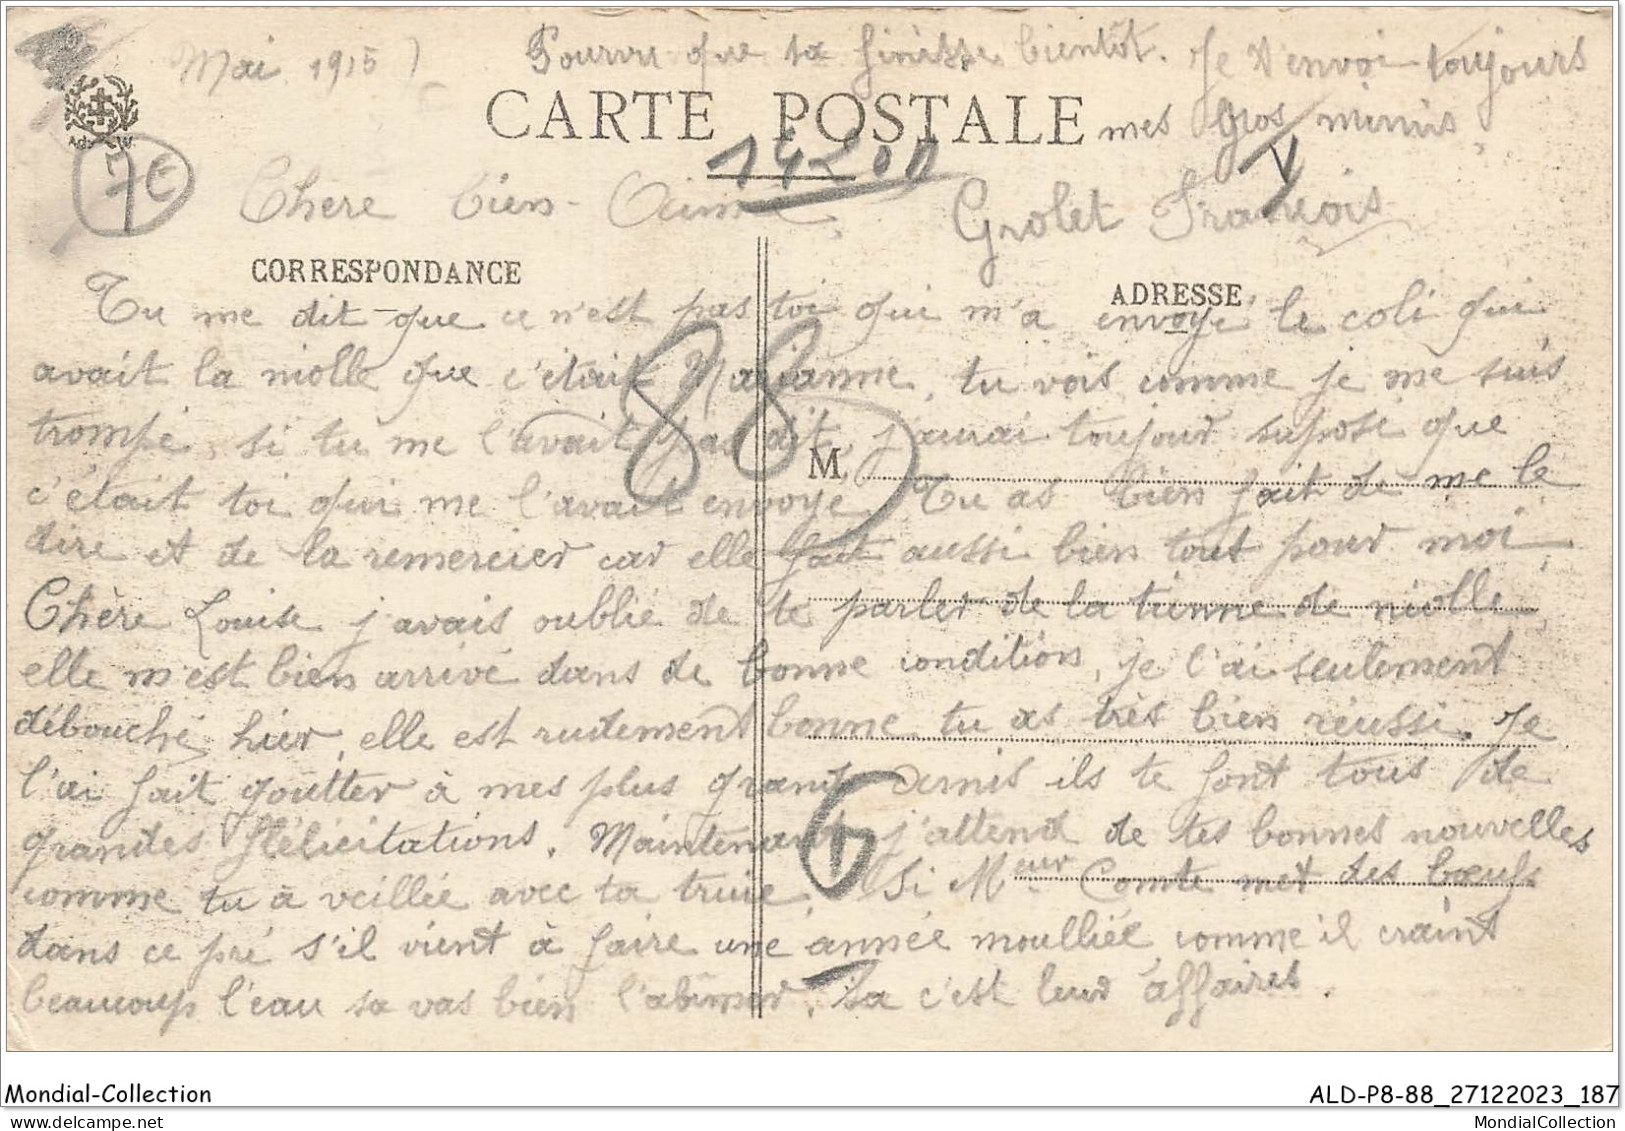 Mai 1915) Pourvu que sa finisse bientôt. Je t'envoi toujours
CARTE POSTALE mes gros mimis
7€ 14200
Chère bien-Aimée, Grolet François
CORRESPONDANCE ADRESSE
Tu me dit que ce n'est pas toi qui m'a envoyé le coli qui
avait la niolle que c'était Marianne, tu vois comme je me suis
trompé, si tu me l'avait pas dit, j'aurai toujour suposé que
c'était toi qui me l'avait envoyé. Tu as bien fait de me le
dire et de la remercier car elle fait aussi bien tout pour moi.
Chère Louise j'avais oublié de te parler de la tienne de niolle,
elle m'est bien arrivé dans de bonne condition, je l'ai seulement
débouché hier, elle est rudement bonne tu as très bien réussi. Je
l'ai fait goutter à mes plus grands amis ils te font tous de
grandes félicitations. Maintenant j'attend de tes bonnes nouvelles
comme tu à veillée avec ta truie. Si Meur Comte met des bœufs
dans ce pré s'il vient à faire une année moulliée, comme il craint
beaucoup l'eau sa vas bien l'abimer. Sa c'est leur affaires.
M
88
6
Mondial-Collection ALD-P8-88_27122023_187
www.MondialCollection.com